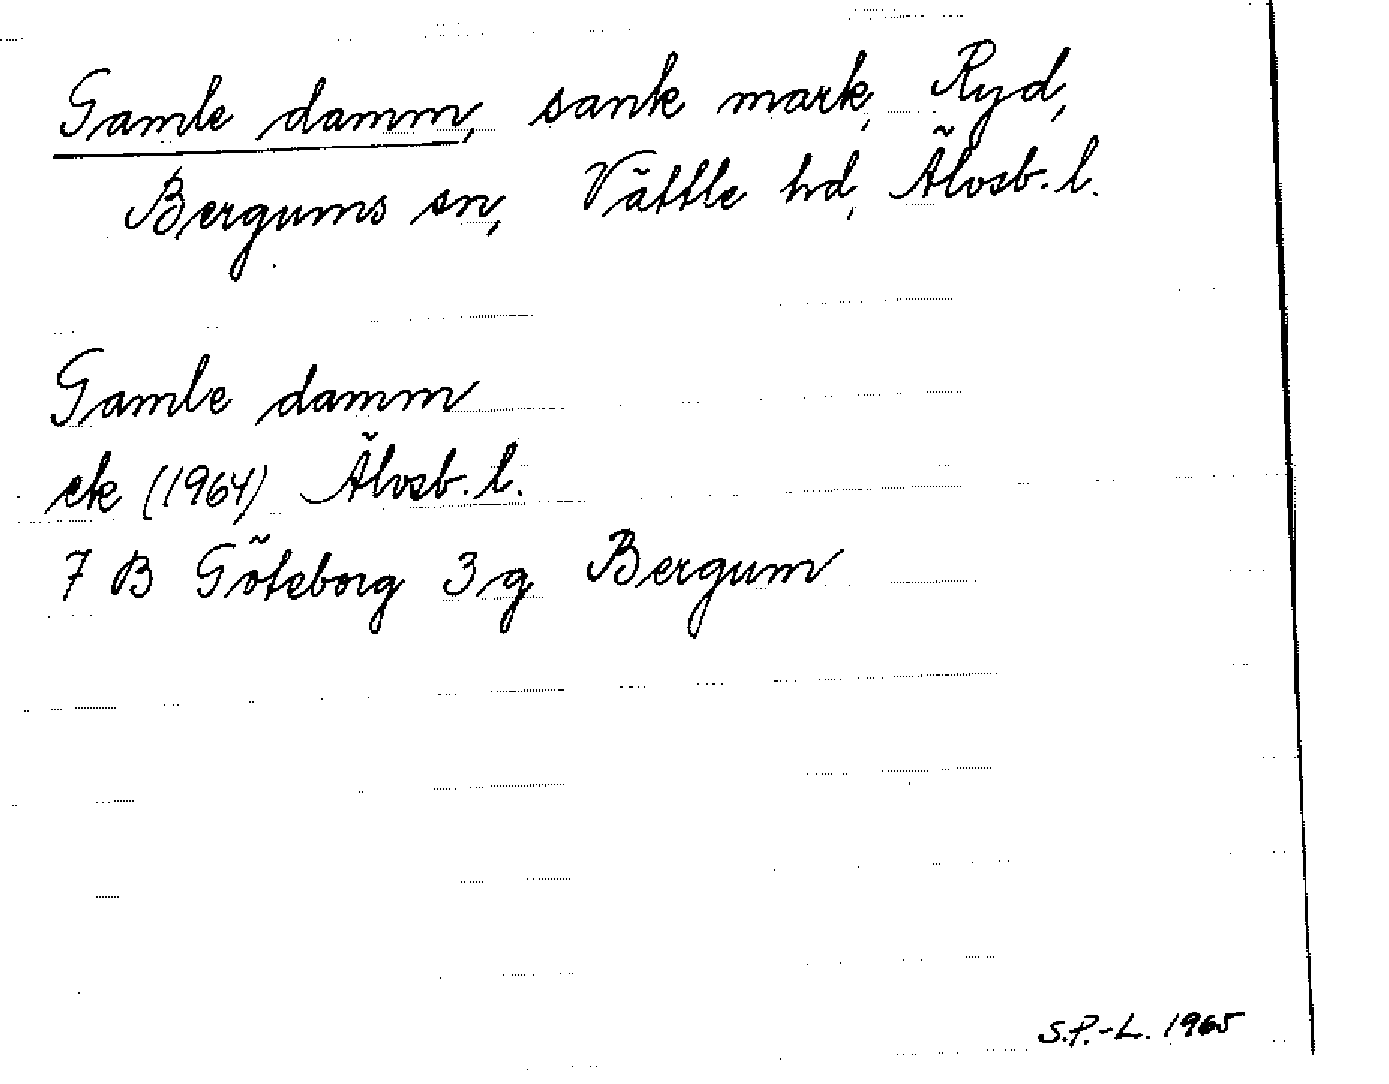 Gamle damm, sank mark, Ryd,
Bergums sn, Vättle hd, Älvsb. l.
Gamle damm
ek (1964) Älvsb. l.
7 B Göteborg 3 g Bergum
S.P.-L. 1965